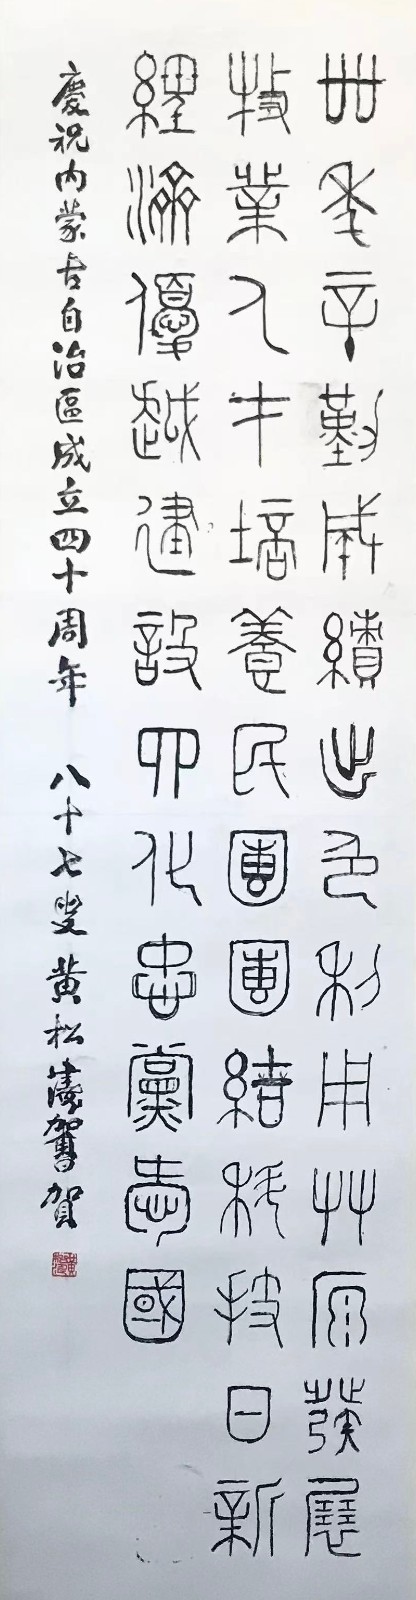 卌年辛勤成績出色利用艸原發展
牧業人才培養民團團結科技日新
經濟優越建設四化忠黨愛國
慶祝内蒙古自治區成立四十周年 八十七叟黄松濤賀